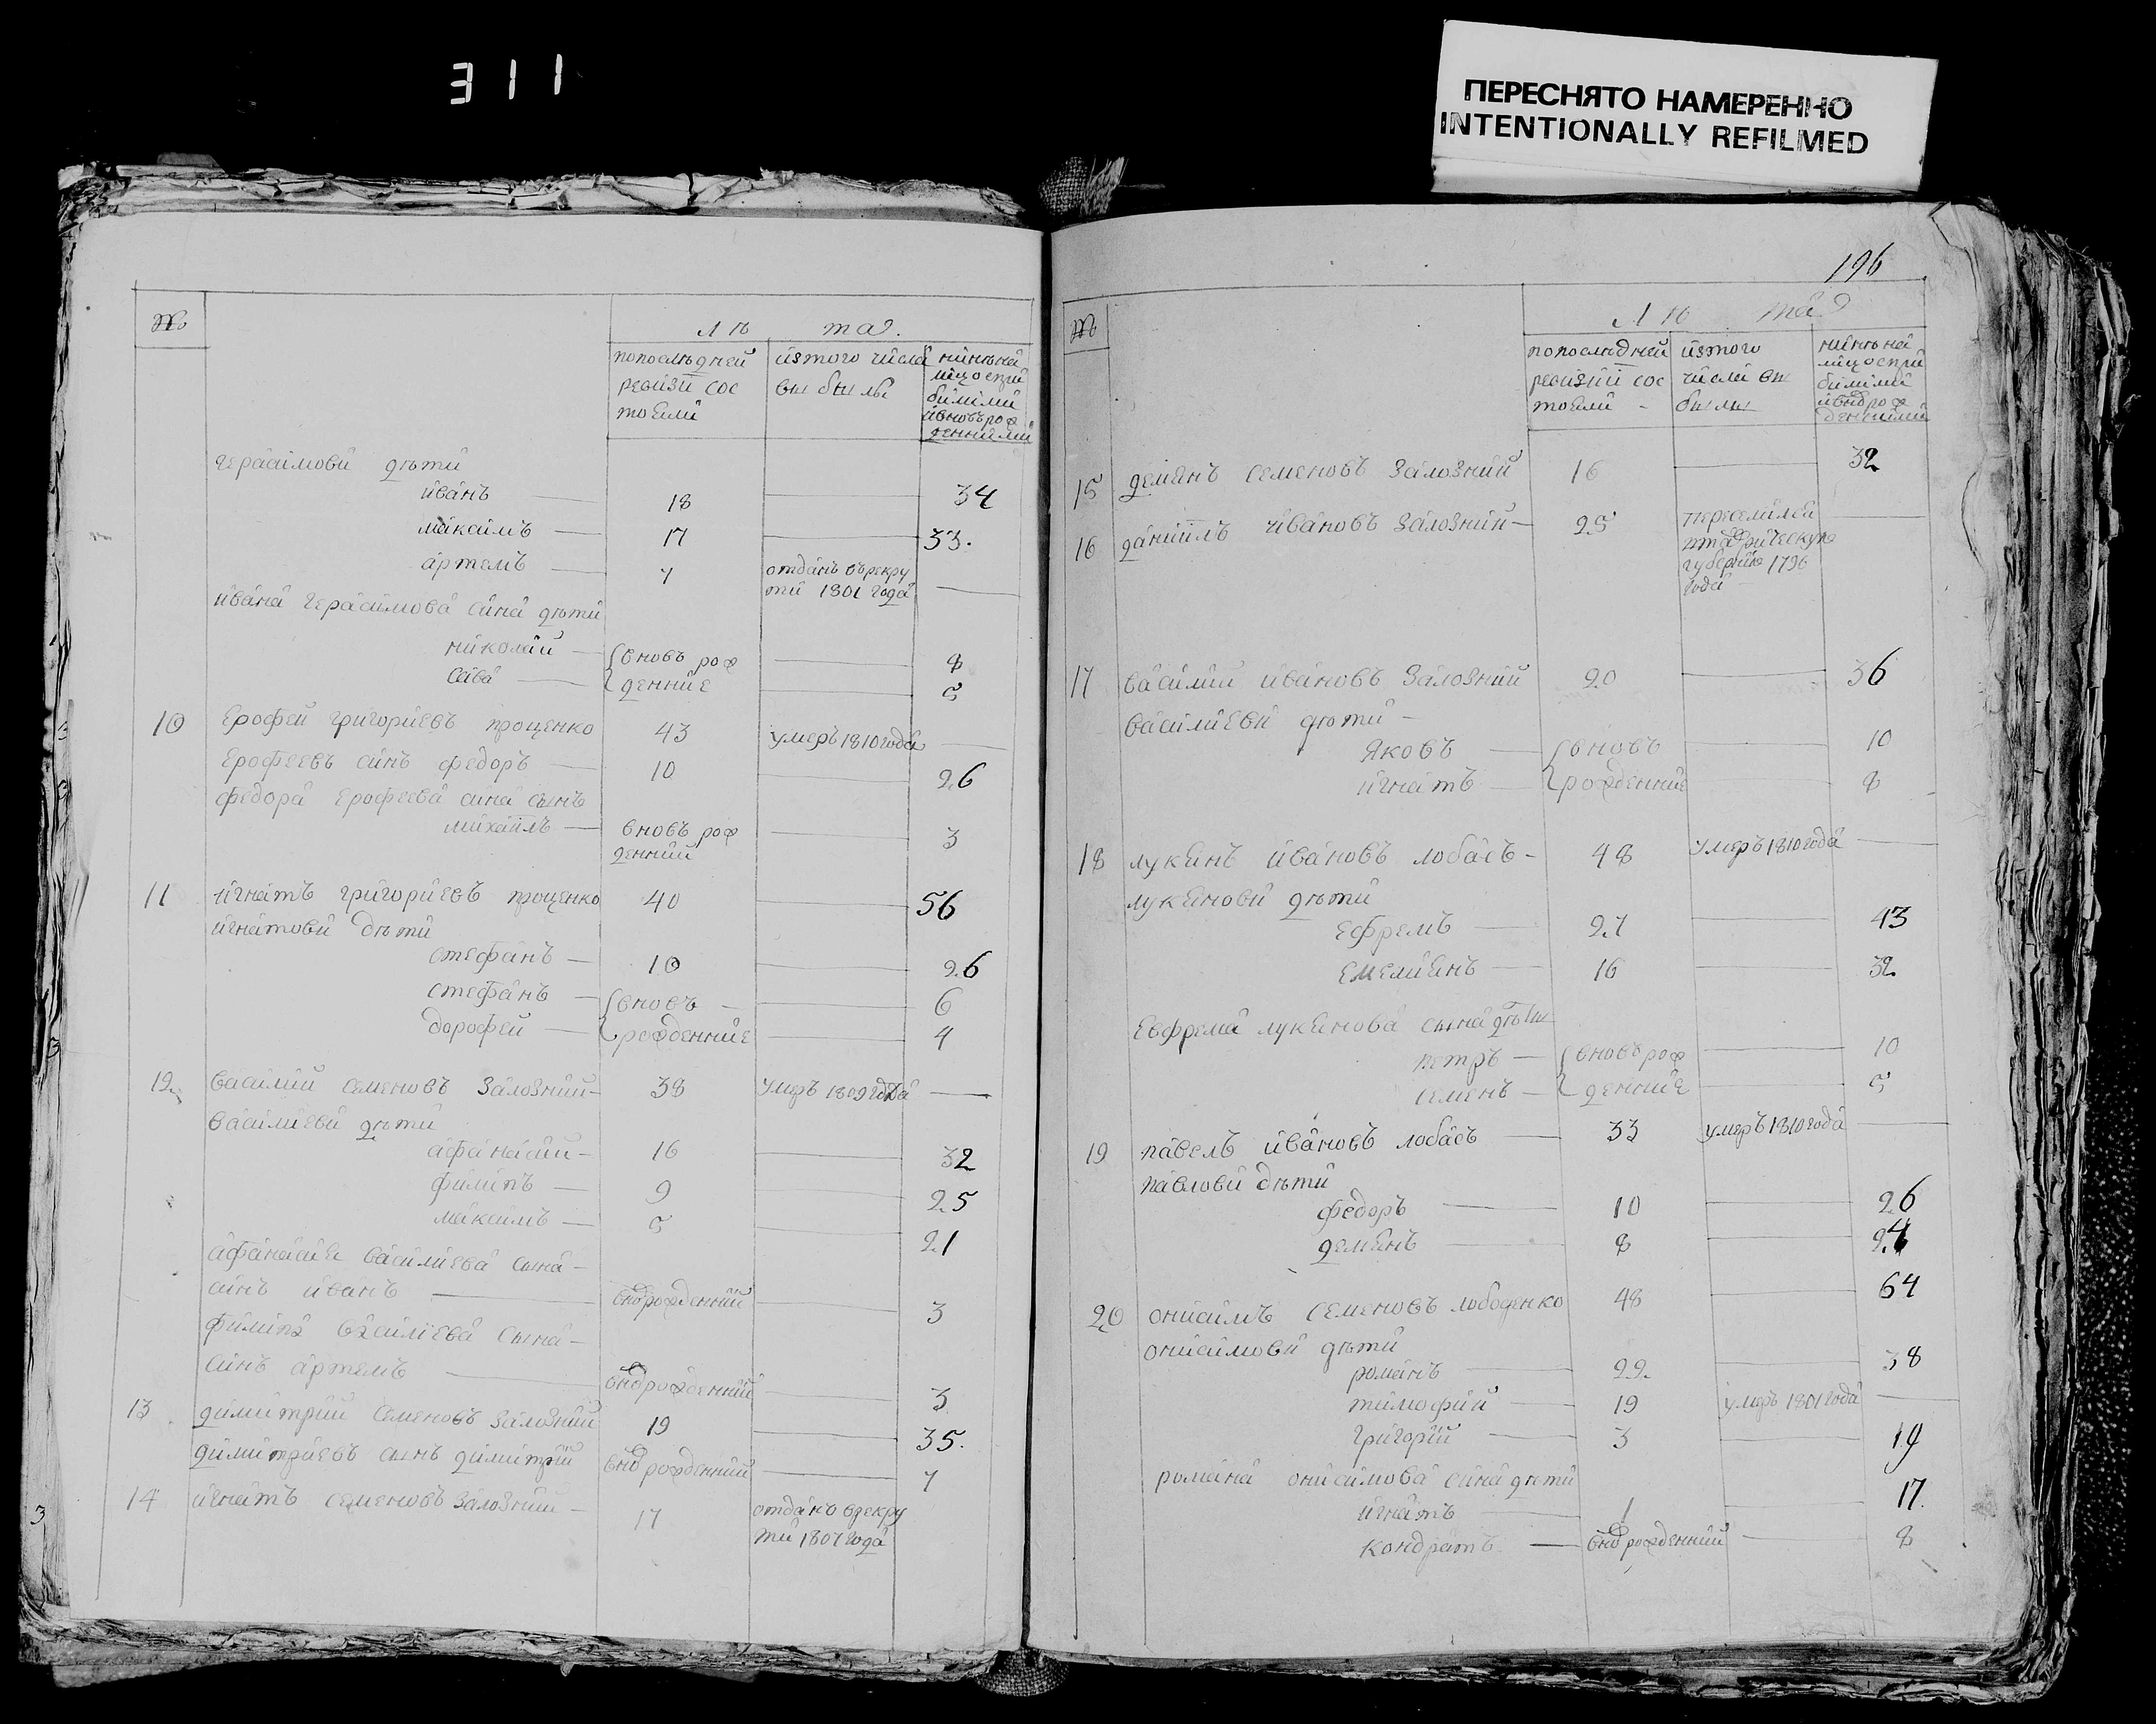 311
ПЕРЕСНЯТО НАМЕРЕННО
INTENTIONALLY REFILMED
№
лѣта
попослѣдней ревизіи состояли
изтого числа выбыли
герасимови дѣти
иванъ 18 34
максимъ 17 33.
артемъ 7 отданъ врекру
ти 1801 года
ивана герасимова сина дѣти
николай вновь рож 8
сава денние 5
10 Ерофей григориевъ проценко 43 умеръ 1810 года
Ерофеевъ синъ федоръ 10 26
федора ерофеева сина сынъ
михаилъ вновь рож 3
денний
11 игнатъ григориевъ проценко 40 56
игнатови дѣти
стефанъ 10 26
стефанъ вновъ 6
дорофей рожденние 4
12 василий семеновъ залозний 38 умеръ 1809 года
василиеви дѣти
афанасий 16 32
филипъ 9 25
максимъ 5 21
афанасия василиева сына
синъ иванъ внорожденний 3
филипа василиева сына
синъ артемъ внорожденний 3
13 димитрий семеновъ залозний 19 35.
димитриевъ сынъ димитрий внорожденний 7
14 игнатъ семеновъ залозний 17 отданъ врекру
ти 1807 года
196
№
лѣта
попослѣдней ревизий состояли
изтого числа выбылы
15 демянъ семеновъ залозний 16 32
16 даниилъ ивановъ залозний 25 переселился
губернию 1796
года
17 василий ивановъ залозний 20 36
василиеви дѣти
яковъ вновъ 10
игнатъ рожденние 8
18 лукянъ ивановъ лобасъ 48 умеръ 1810 года
лукянови дѣти
ефремъ 27 43
емелиянъ 16 32
евфрема лукянова сына дѣты
петръ вновъ рож 10
семенъ денние 5
19 павелъ ивановъ лобасъ 33 умеръ 1810 года
павлови дѣти
федоръ 10 26
демянъ 8 24
20 онисимъ семеновъ лободенко 48 64
онисимови дѣти
романъ 22 38
тимофий 19 умеръ 1801 года
григорий 3 19
романа онисимова сина дѣти
игнатъ 1 17.
кондратъ внорожденний 8